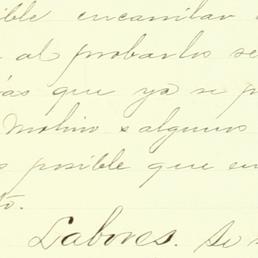 ible encarrilar
al probarlos se
ás que ya se p
Molino s algunos
s posible que en
to.
Labores. Se